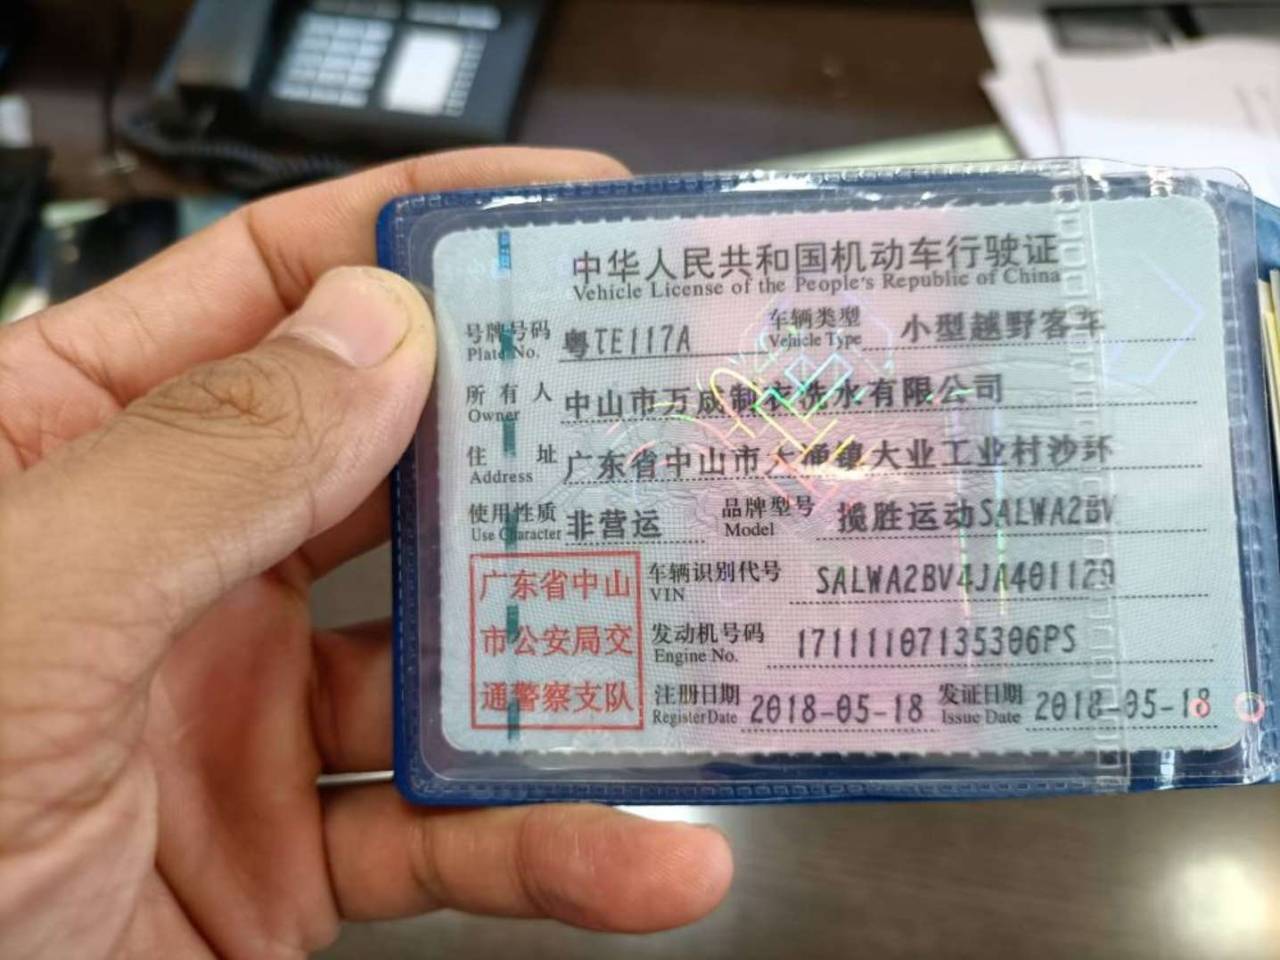 中华人民共和国机动车行驶证
Vehicle License of the People's Republic of China
号牌号码 粤TE117A 车辆类型 小型越野客车
Plate No. Vehicle Type
所有人 中山市万成制衣洗水有限公司
Owner
住址 广东省中山市大涌镇大业工业村沙环
Address
使用性质 非营运 品牌型号 揽胜运动SALWA2BV
Use Character Model
车辆识别代号 SALWA2BV4JA401129
VIN
发动机号码 171111107135306PS
Engine No.
注册日期 2018-05-18 发证日期 2018-05-18
Register Date Issue Date
广东省中山
市公安局交
通警察支队